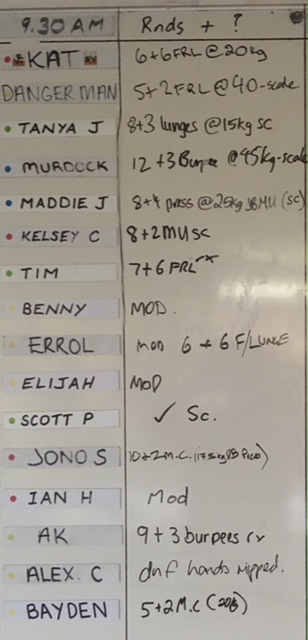 9.30 AM Rnds + ?
KAT 6+6 FRL @ 20kg
DANGER MAN 5+2 FRL @ 40-scale
TANYA J 8+3 lunges @ 15kg sc
MURDOCK 12+3 Burpee @ 45kg-scale
MADDIE J 8+4 press @ 25kg JBMU (sc)
KELSEY C 8+2 MU sc
TIM 7+6 FRL rx
BENNY MOD.
ERROL mod 6+6 F/LUNGE
ELIJAH MOD
SCOTT P ✓ Sc.
JONO S 10+2 M.C.
IAN H Mod
AK 9+3 burpees rx
ALEX. C dnf hands ripped.
BAYDEN 5+2 M.C